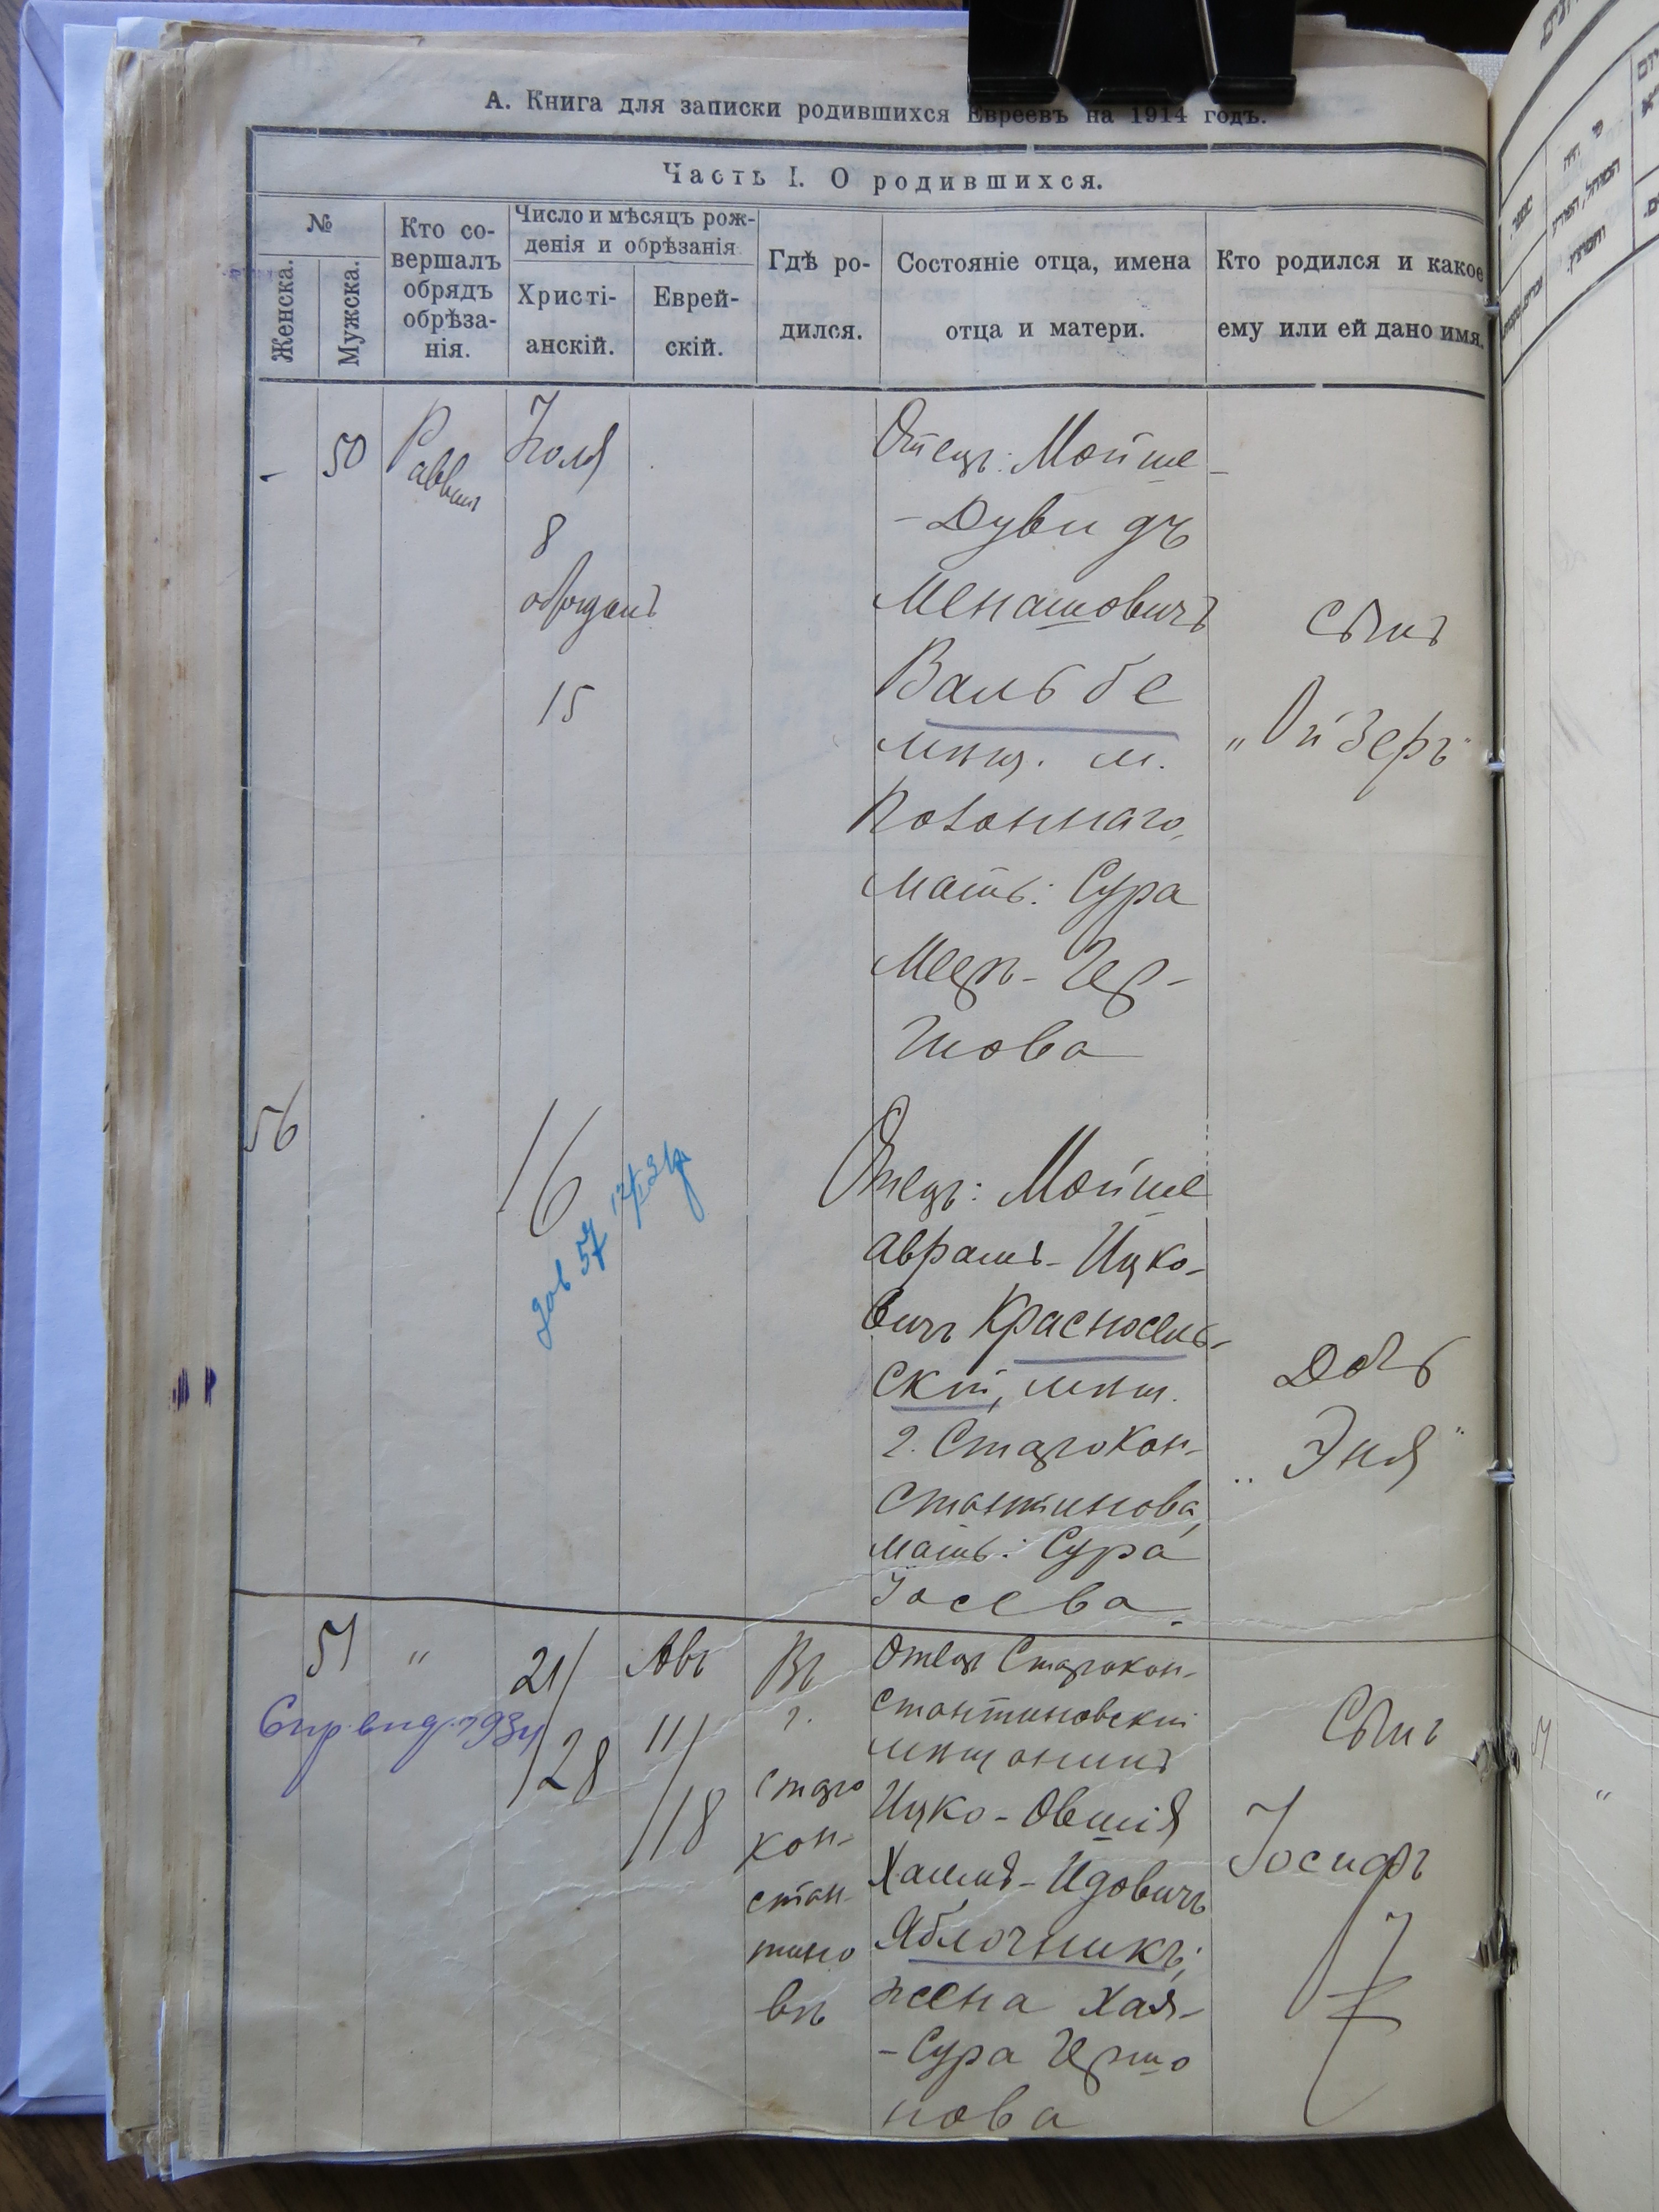 А. Книга для записки родившихся Евреевъ на 1914 годъ.
Часть I. О родившихся.
№
Женска.
Мужска.
Кто со-
вершалъ
обрядъ
обрѣза-
нія.
Число и мѣсяцъ рож-
денія и обрѣзанія
Христі-
анскій.
Еврей-
скій.
Гдѣ ро-
дился.
Состояніе отца, имена
отца и матери.
Кто родился и какое
ему или ей дано имя.
50
Раввинъ
Іюля
8
обрѣзанъ
15
Отецъ: Мойше-
-Дувидъ
Менашовичъ
Вальбе
мѣщ. м.
Полоннаго,
мать: Сура
Меер-Гер-
шова
сынъ
„Ойзеръ"
56
16
Отецъ: Мойше
Аврамъ-Ицко-
вичъ Красносель-
скій, мѣщ.
г. Старокон-
стантинова,
мать: Сура
Іосева.
Дочь
„Эня"
51
"
21/
/28
Авъ
11/
/18
Въ
г.
Старо
кон-
стан-
тино
вѣ
Отецъ Старокон-
стантиновскій
мѣщанинъ
Ицко-Овшія
Хаимъ-Идовичъ
Яблочникъ;
жена Хая-
-Сура Гершо
нова
Сынъ
Іосифъ